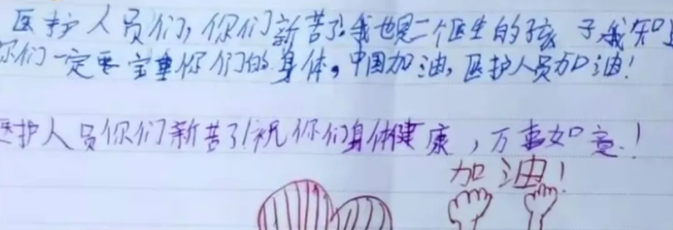 医护人员们,你们新苦了!我也是一个医生的孩子我知
你们一定要宝重你们的身体。中国加油,医护人员加油!
医护人员你们新苦了!祝你们身体健康,万事如意.!
加油!